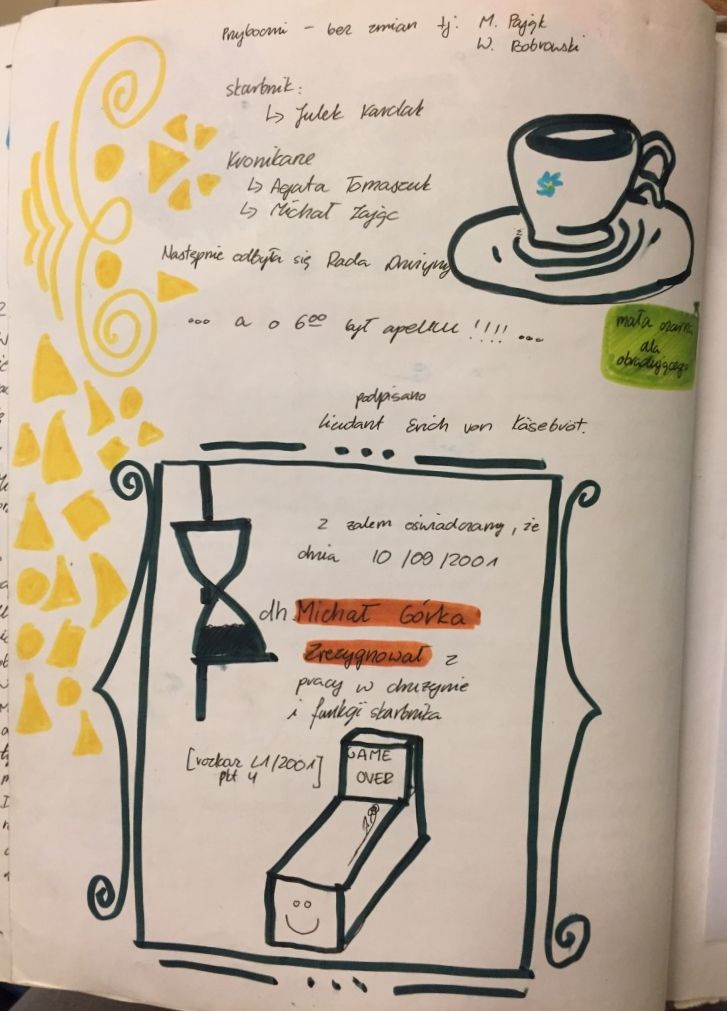 Przyboczni - bez zmian tj: M. Pająk
W. Bobrowski
skarbnik:
↳ Julek Kardak
Kronikarze
↳ Agata Tomaszuk
↳ Michał Zając
Następnie odbyła się Rada Drużyny
... a o 6⁰⁰ był apelku !!!! ...
mała czarna
dla
obradującego
podpisano
Licudant Erich von Käsebrot.
Z żalem oświadczamy, że
dnia 10/09/2001
dh. Michał Górka
Zrezygnował z
pracy w drużynie
i funkcji skarbnika
[rozkaz L1/2001]
pkt 4
GAME
OVER